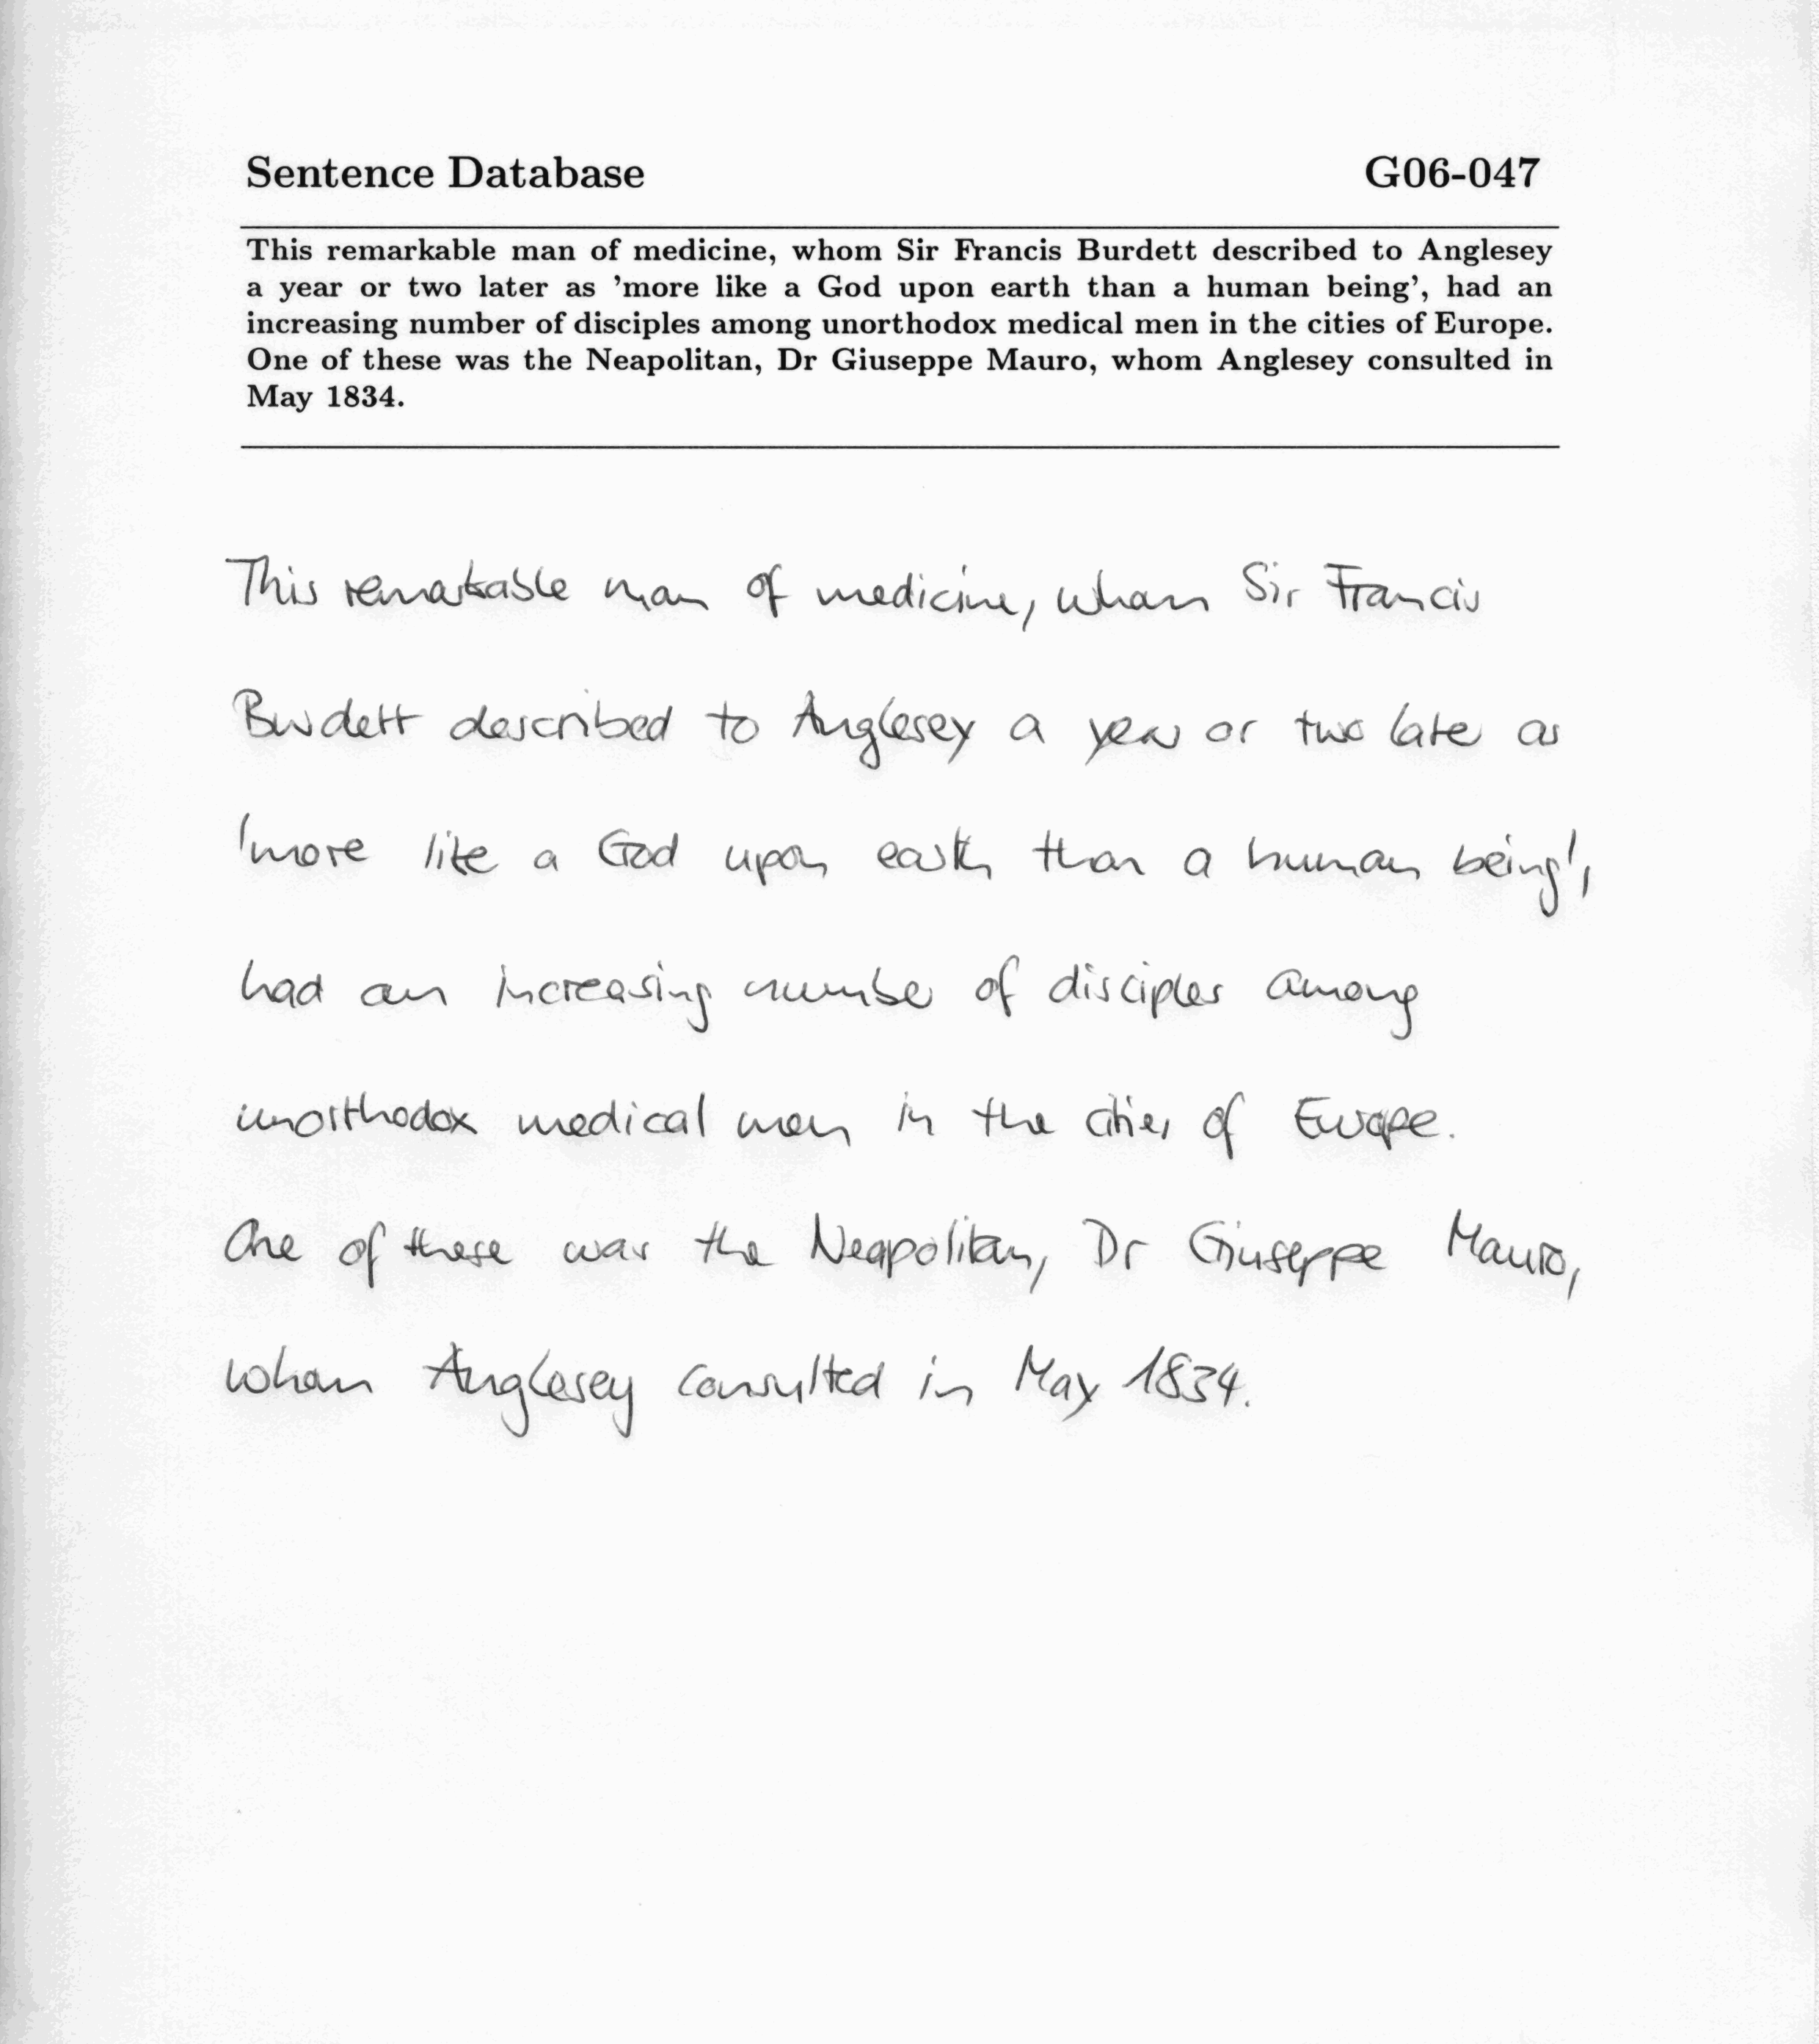 Sentence Database G06-047
This remarkable man of medicine, whom Sir Francis Burdett described to Anglesey
a year or two later as 'more like a God upon earth than a human being', had an
increasing number of disciples among unorthodox medical men in the cities of Europe.
One of these was the Neapolitan, Dr Giuseppe Mauro, whom Anglesey consulted in
May 1834.
This remarkable man of medicine, whom Sir Francis
Burdett described to Anglesey a year or two later as
'more like a God upon earth than a human being',
had an increasing number of disciples among
unorthodox medical men in the cities of Europe.
One of these was the Neapolitan, Dr Giuseppe Mauro,
whom Anglesey consulted in May 1834.